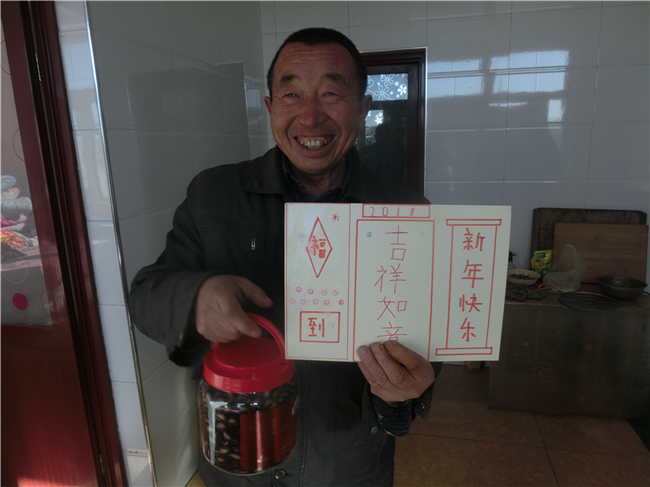 2018
福
到
吉祥如意
新年快乐